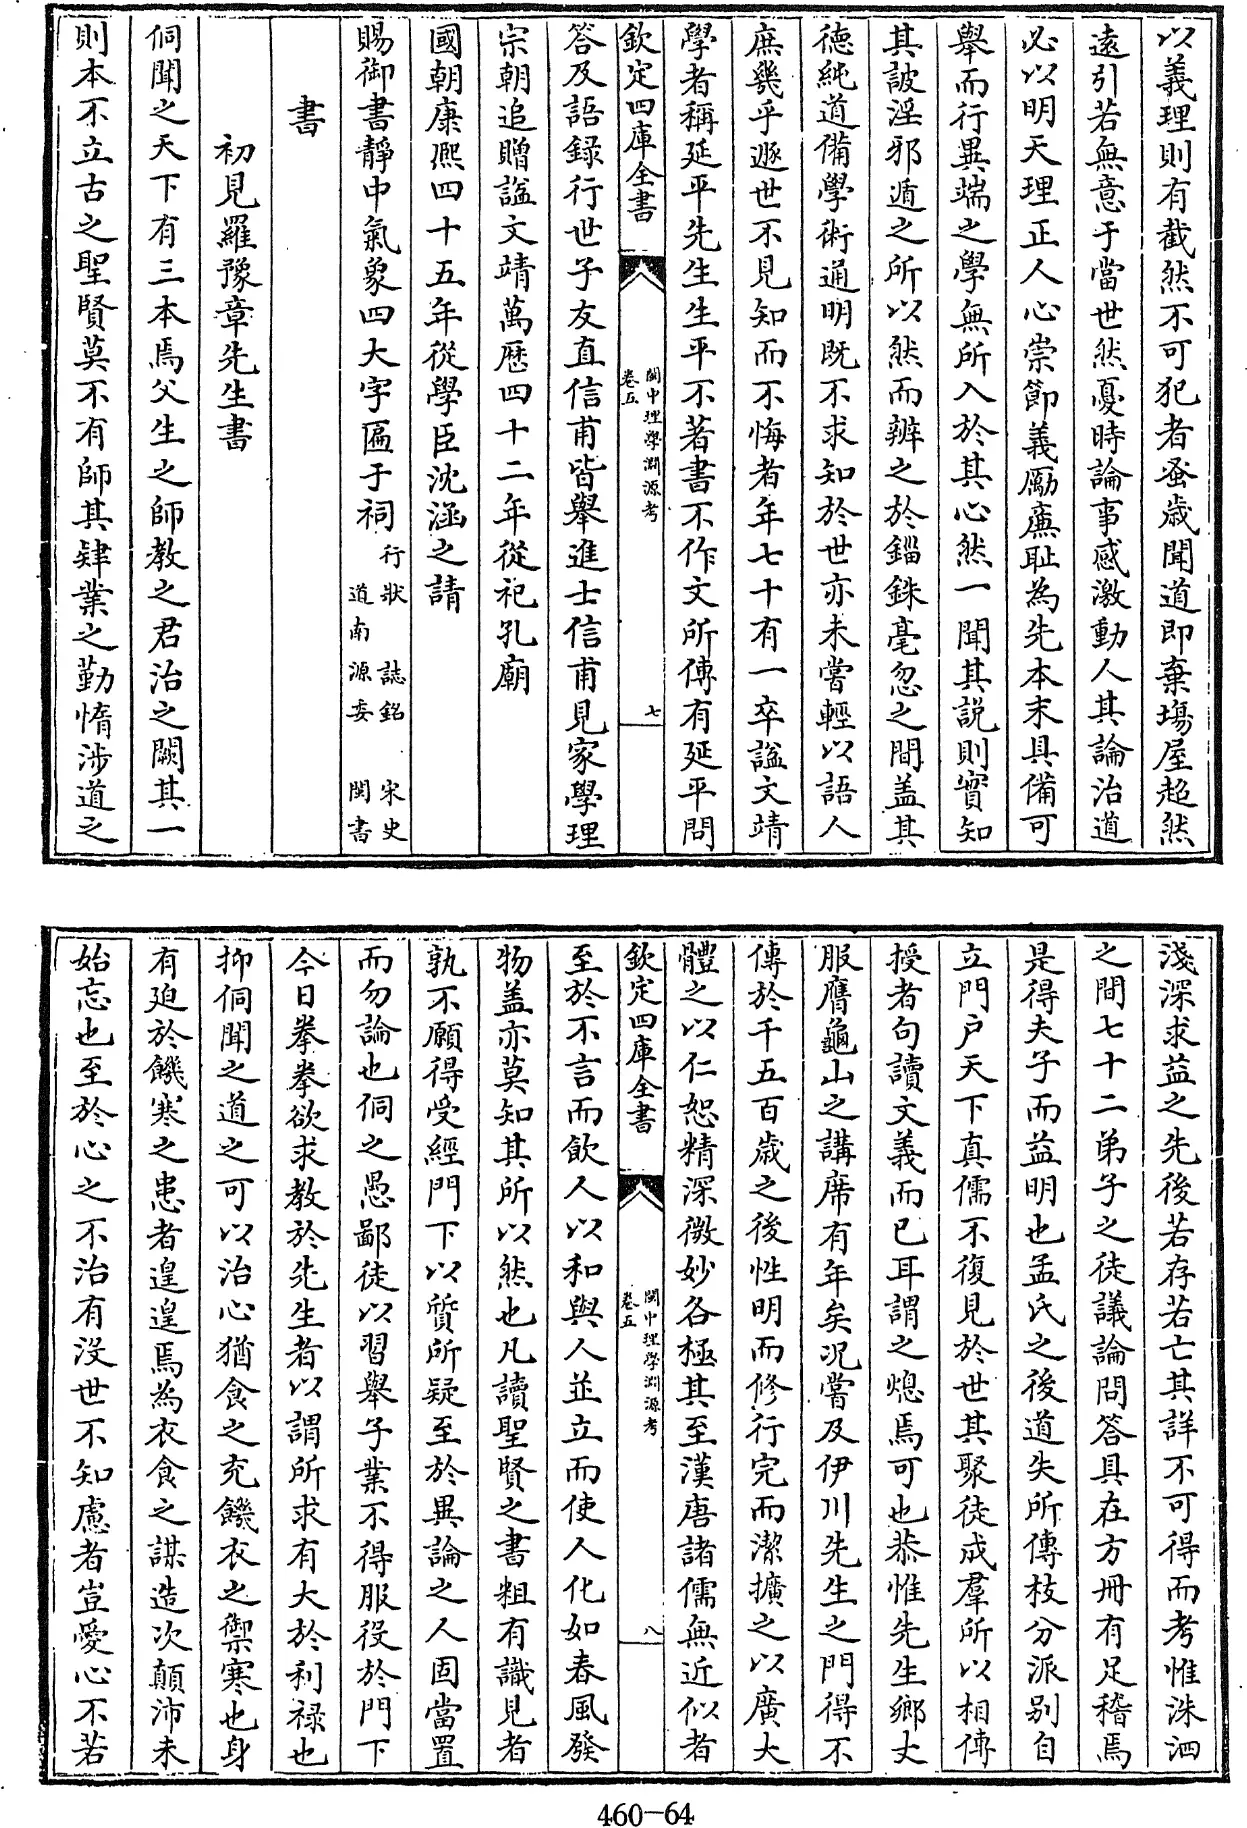 以義理則有截然不可犯者蚤歲聞道即棄場屋超然
遠引若無意于當世然憂時論事感激動人其論治道
必以明天理正人心崇節義厲廉耻為先本末具備可
舉而行異端之學無所入於其心然一聞其説則實知
其詖淫邪遁之所以然而辨之於錙銖毫忽之間盖其
徳純道備學術通明既不求知於世亦未嘗輕以語人
庶幾乎遯世不見知而不悔者年七十有一卒諡文靖
學者稱延平先生生平不著書不作文所傳有延平問
欽定四庫全書
閩中理學淵源考
卷五
七
答及語録行世子友直信甫皆舉進士信甫見家學理
宗朝追贈諡文靖萬厯四十二年從祀孔廟
國朝康熙四十五年從學臣沈涵之請
賜御書靜中氣象四大字匾于祠行狀 誌銘 宋史
道南源委 閩書
書
初見羅豫章先生書
侗聞之天下有三本焉父生之師教之君治之闕其一
則本不立古之聖賢莫不有師其肄業之勤惰涉道之
淺深求益之先後若存若亡其詳不可得而考惟洙泗
之間七十二弟子之徒議論問答具在方冊有足稽焉
是得夫子而益明也孟氏之後道失所傳枝分派别自
立門戸天下真儒不復見於世其聚徒成羣所以相傳
授者句讀文義而已耳謂之熄焉可也恭惟先生鄉丈
服膺龜山之講席有年矣况嘗及伊川先生之門得不
傳於千五百歲之後性明而修行完而潔擴之以廣大
體之以仁恕精深微妙各極其至漢唐諸儒無近似者
欽定四庫全書
閩中理學淵源考
卷五
八
至於不言而飲人以和與人並立而使人化如春風發
物盖亦莫知其所以然也凡讀聖賢之書粗有識見者
孰不願得受經門下以質所疑至於異論之人固當置
而勿論也侗之愚鄙徒以習舉子業不得服役於門下
今日拳拳欲求教於先生者以謂所求有大於利禄也
抑侗聞之道之可以治心猶食之充饑衣之禦寒也身
有廹於饑寒之患者遑遑焉為衣食之謀造次顛沛未
始忘也至於心之不治有沒世不知慮者豈愛心不若
460-64